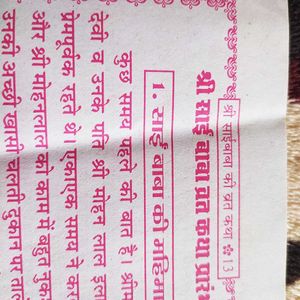 श्री साईबाबा की व्रत कथा ✽ 3
श्री साईं बाबा व्रत कथा प्रार
1. साईं बाबा की महिमा
कुछ समय पहले की बात है। श्रीम
देवी व उनके पति श्री मोहन लाल इल
प्रेमपूर्वक रहते थे। एकाएक समय ने कर
और श्री मोहनलाल को काम में बहुत नुक
उनकी अच्छी खासी चलती दुकान पर ताल